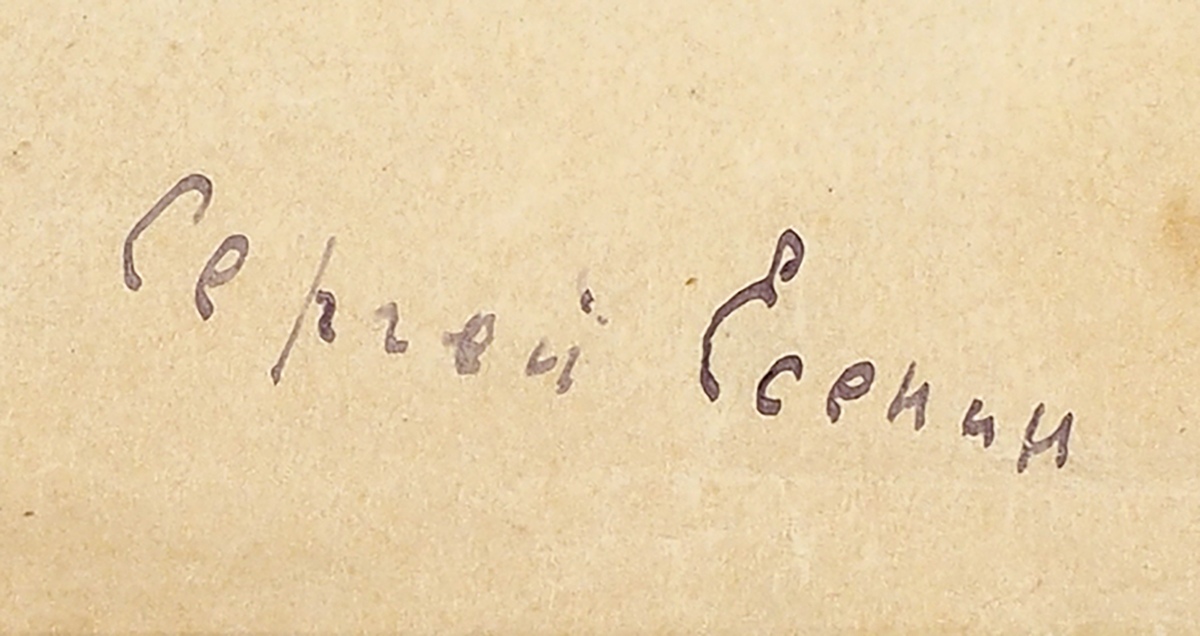 Сергей Есенин